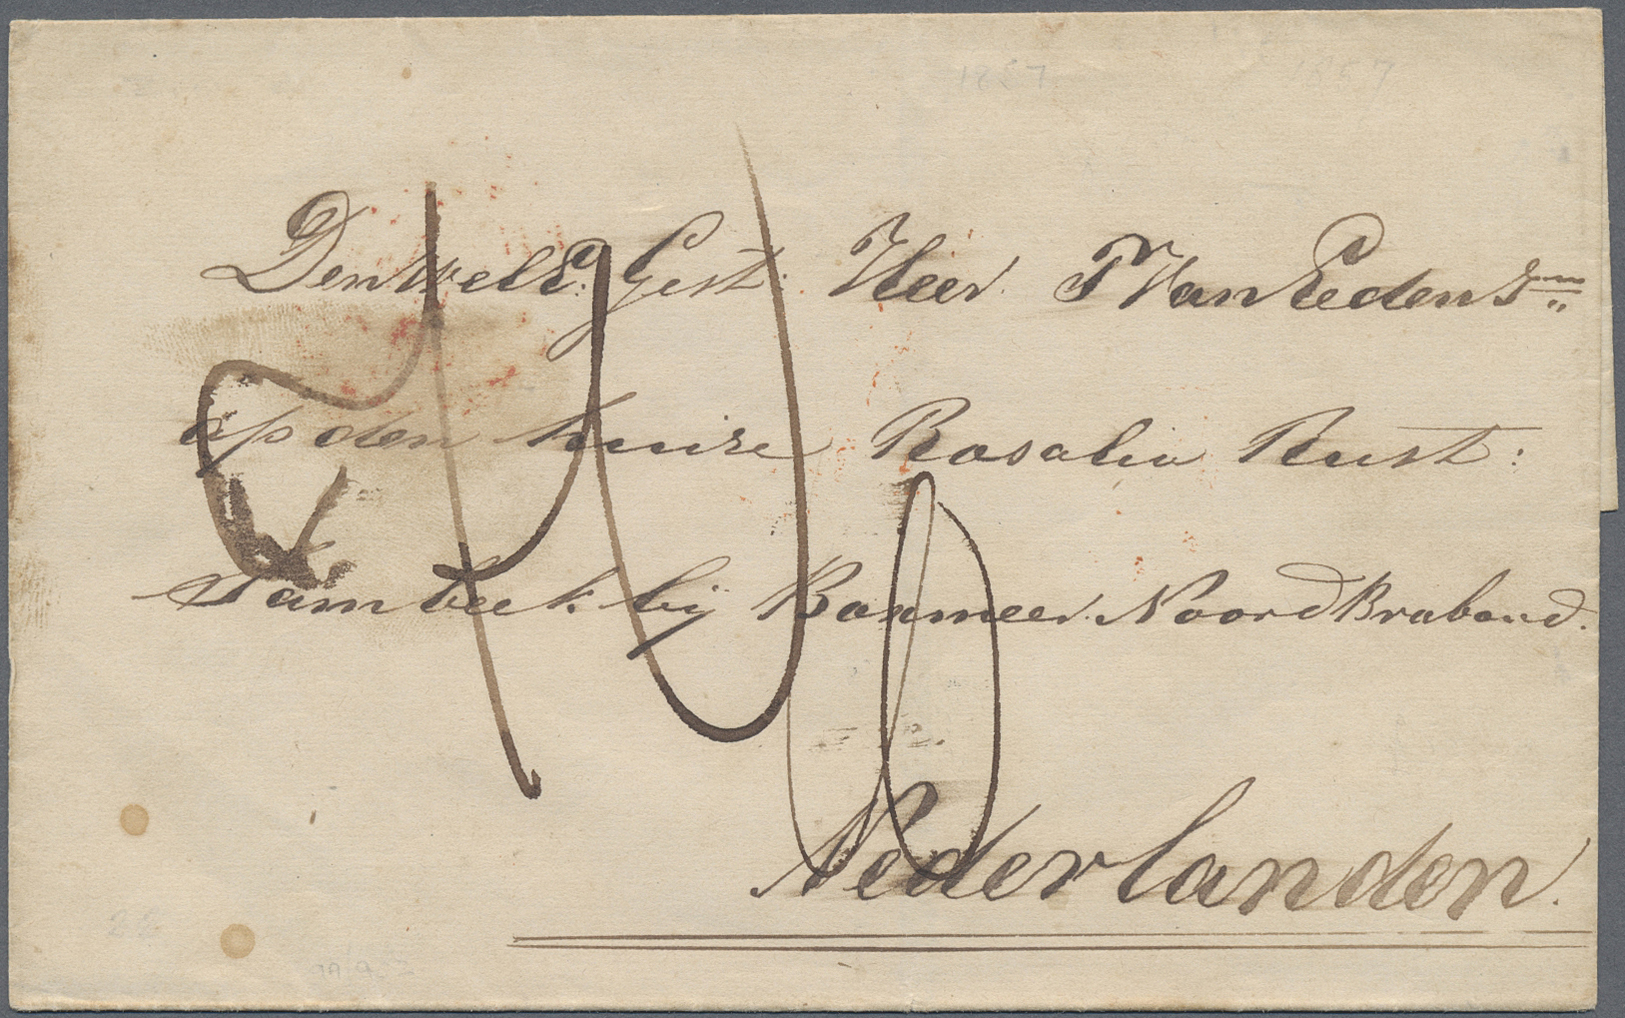 1857 1857
Den WelE: Gest: Heer P Van Eeden
op den huize Rosalia Rust:
Sambeek bij Boxmeer. Noord Braband.
Nederlanden.